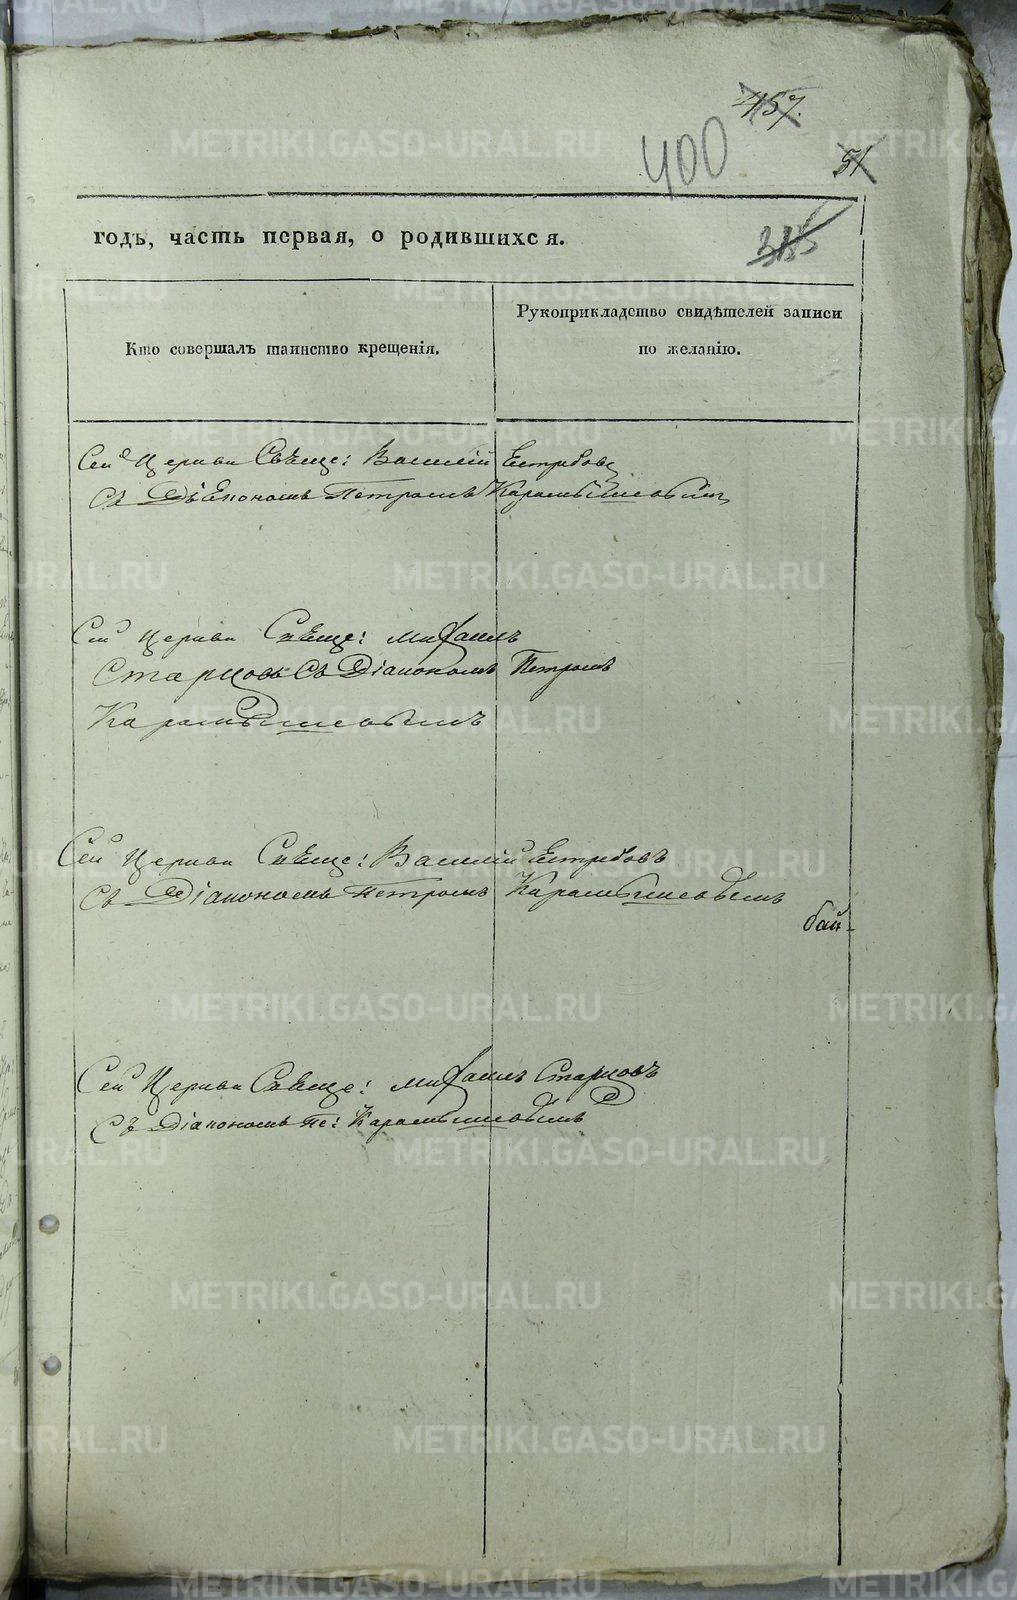 457.
400
51
385
годъ, часть первая, о родившихся.
Кто совершалъ таинство крещенія.
Рукоприкладство свидѣтелей записи
по желанію.
Сей Церкви Свѣще: Василій Ѣстребовъ
Съ Діякономъ Петромъ Карамышевымъ
Сей Церкви Свѣще: Михаилъ
Старцовъ Съ Діакономъ Петромъ
Карамышевымъ
Сей Церкви Свѣще: Василій Ѣстребовъ
Съ Діакономъ Петромъ Карамышевымъ
бай-
Сей Церкви Свѣще: Михаилъ Старцовъ
Съ Діакономъ Пе: Карамышевымъ
METRIKI.GASO-URAL.RU